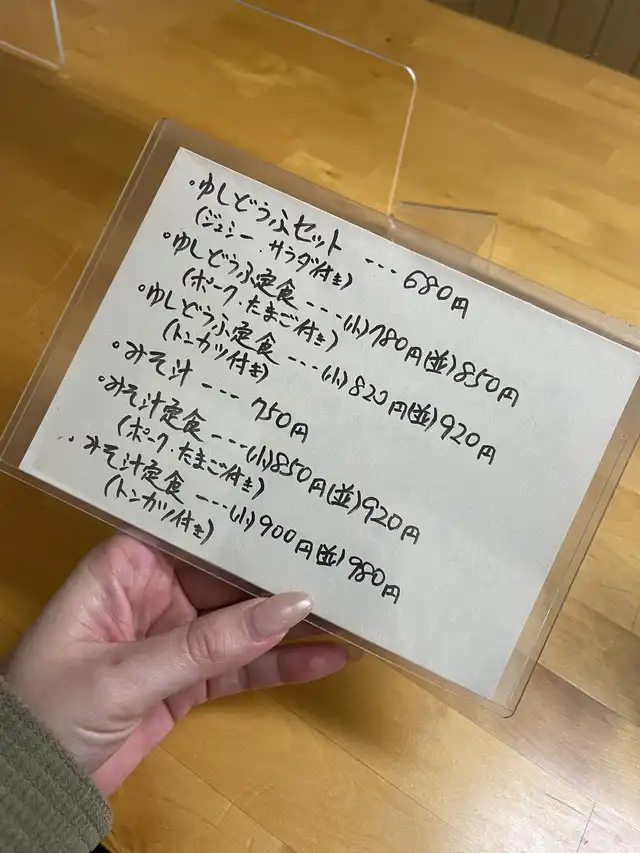 ・ゆしどうふセット --- 680円
(ジューシー・サラダ付き)
・ゆしどうふ定食 --- (小)780円(並)850円
(ポーク・たまご付き)
・ゆしどうふ定食 --- (小)820円(並)920円
(トンカツ付き)
・みそ汁 --- 750円
・みそ汁定食 --- (小)850円(並)920円
(ポーク・たまご付き)
・みそ汁定食 --- (小)900円(並)980円
(トンカツ付き)